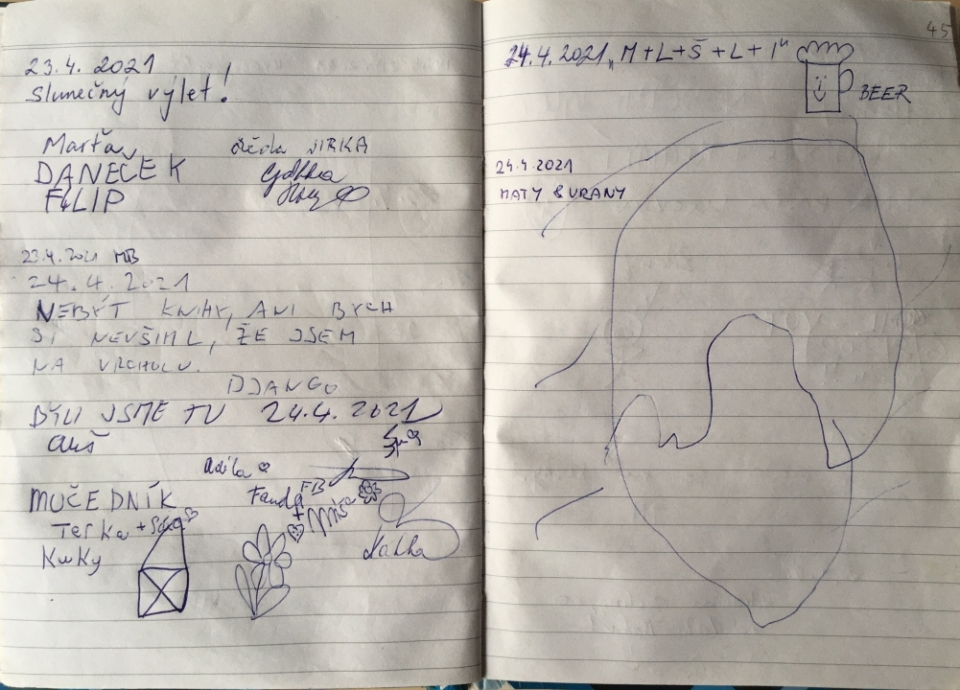 23.4. 2021
Slunečný výlet!
Marťa
DANEČEK
FILIP
děda JIRKA
23.4. 2021 MB
24.4.2021
NEBÝT KNIHY, ANI BYCH
SI NEVŠIML, ŽE JSEM
NA VRCHOLU.
DJANGO
BYLI JSME TU 24.4.2021
Adéla
MUČEDNÍK
Fanda FB
Terka +
+ Míša
Kuky
Katka
45
24.4.2021 „M+L+Š+L+I“
BEER
24.4.2021
MATY & VRANY